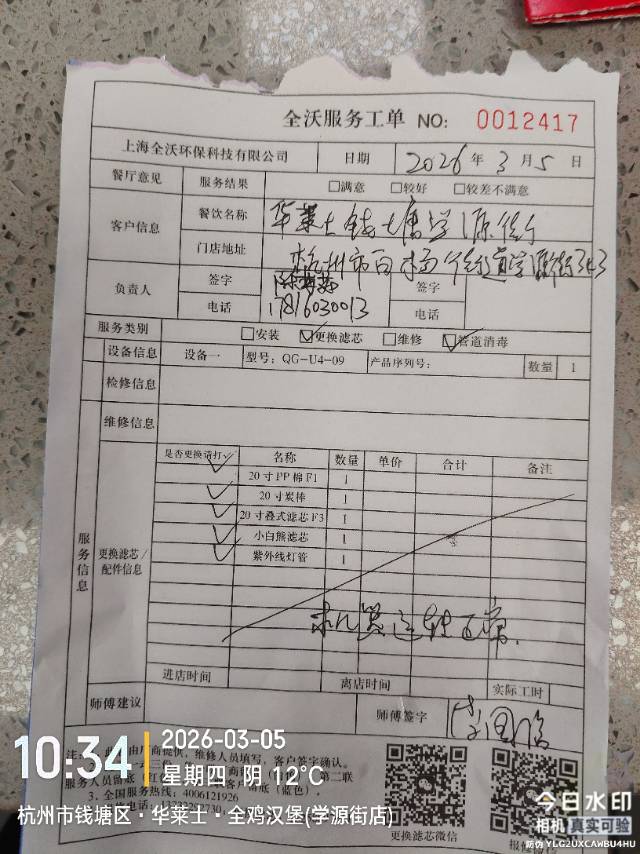 全沃服务工单 NO: 0012417
上海全沃环保科技有限公司 日期 2026年3月5日
餐厅意见 服务结果 □满意 □较好 □较差不满意
客户信息 餐饮名称 华莱士钱塘学源街
门店地址 杭州市白杨街道学源街343
负责人 签字 签字
电话 17816030013 电话
服务类别 □安装 ☑更换滤芯 □维修 ☑管道消毒
设备信息 设备一 型号: QG-U4-09 产品序列号: 数量 1
检修信息
维修信息
服务信息
更换滤芯/配件信息
是否更换请打✓ 名称 数量 单价 合计 备注
✓ 20寸PP棉F1 1
✓ 20寸炭棒 1
✓ 20寸叠式滤芯F3 1
✓ 小白熊滤芯 1
✓ 紫外线灯管 1
机器运转正常
进店时间 离店时间 实际工时
师傅建议 师傅签字
注: 由厂商提供, 维修人员填写, 客户签字确认。
第二联
服务人员留底
3. 全国服务热线: 4006121926
更换滤芯微信
10:34
2026-03-05
星期四 阴 12°C
杭州市钱塘区·华莱士·全鸡汉堡(学源街店)
今日水印
相机 真实可验
防伪 YLG2UXCAWBU4HU